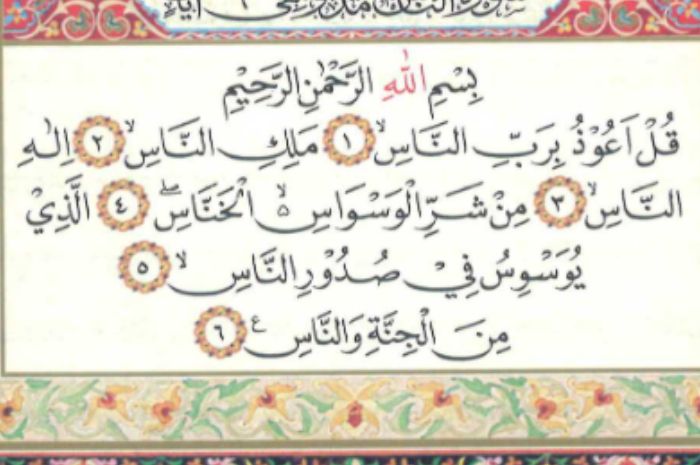 بِسْمِ اللّٰهِ الرَّحْمٰنِ الرَّحِيْمِ
قُلْ اَعُوْذُ بِرَبِّ النَّاسِۙ ١ مَلِكِ النَّاسِۙ ٢ اِلٰهِ
النَّاسِۙ ٣ مِنْ شَرِّ الْوَسْوَاسِ ۙ۵ الْخَنَّاسِۖ ٤ الَّذِيْ
يُوَسْوِسُ فِيْ صُدُوْرِ النَّاسِۙ ٥
مِنَ الْجِنَّةِ وَالنَّاسِ ع ٦